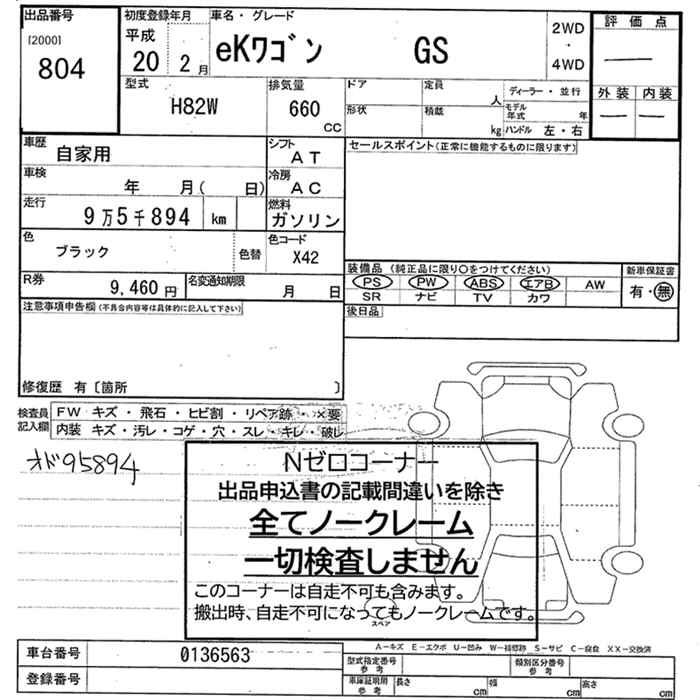 出品番号
[2000]
804
初度登録年月
平成
20 2月
車名・グレード
eKワゴン GS
2WD
・
4WD
評価点
—
外装 内装
— —
型式
H82W
排気量
660
CC
ドア
形状
定員
人
積載
kg
ディーラー・並行
モデル年式 年
ハンドル 左・右
車歴
自家用
シフト
AT
セールスポイント(正常に機能するものに限ります)
車検
年 月( 日)
冷房
AC
走行
9万5千894 km
燃料
ガソリン
色
ブラック
色替
色コード
X42
R券
9,460円
名変通知期限
月 日
装備品 (純正品に限り○をつけてください)
PS PW ABS エアB AW
SR ナビ TV カワ
新車保証書
有・無
後日品
注意事項申告欄(不具合内容等は具体的に記入して下さい)
修復歴 有〔箇所 〕
検査員記入欄
FW キズ・飛石・ヒビ割・リペア跡・×要
内装 キズ・汚レ・コゲ・穴・スレ・キレ・破レ
オド95894
Nゼロコーナー
出品申込書の記載間違いを除き
全てノークレーム
一切検査しません
このコーナーは自走不可も含みます。
搬出時、自走不可になってもノークレームです。
スペア
A-キズ E-エクボ U-凹み W-補修跡 S-サビ C-腐食 XX-交換済
車台番号 0136563
登録番号
型式指定番号
参考
類別区分番号
参考
車庫証明用
参考
長さ cm
幅 cm
高さ cm